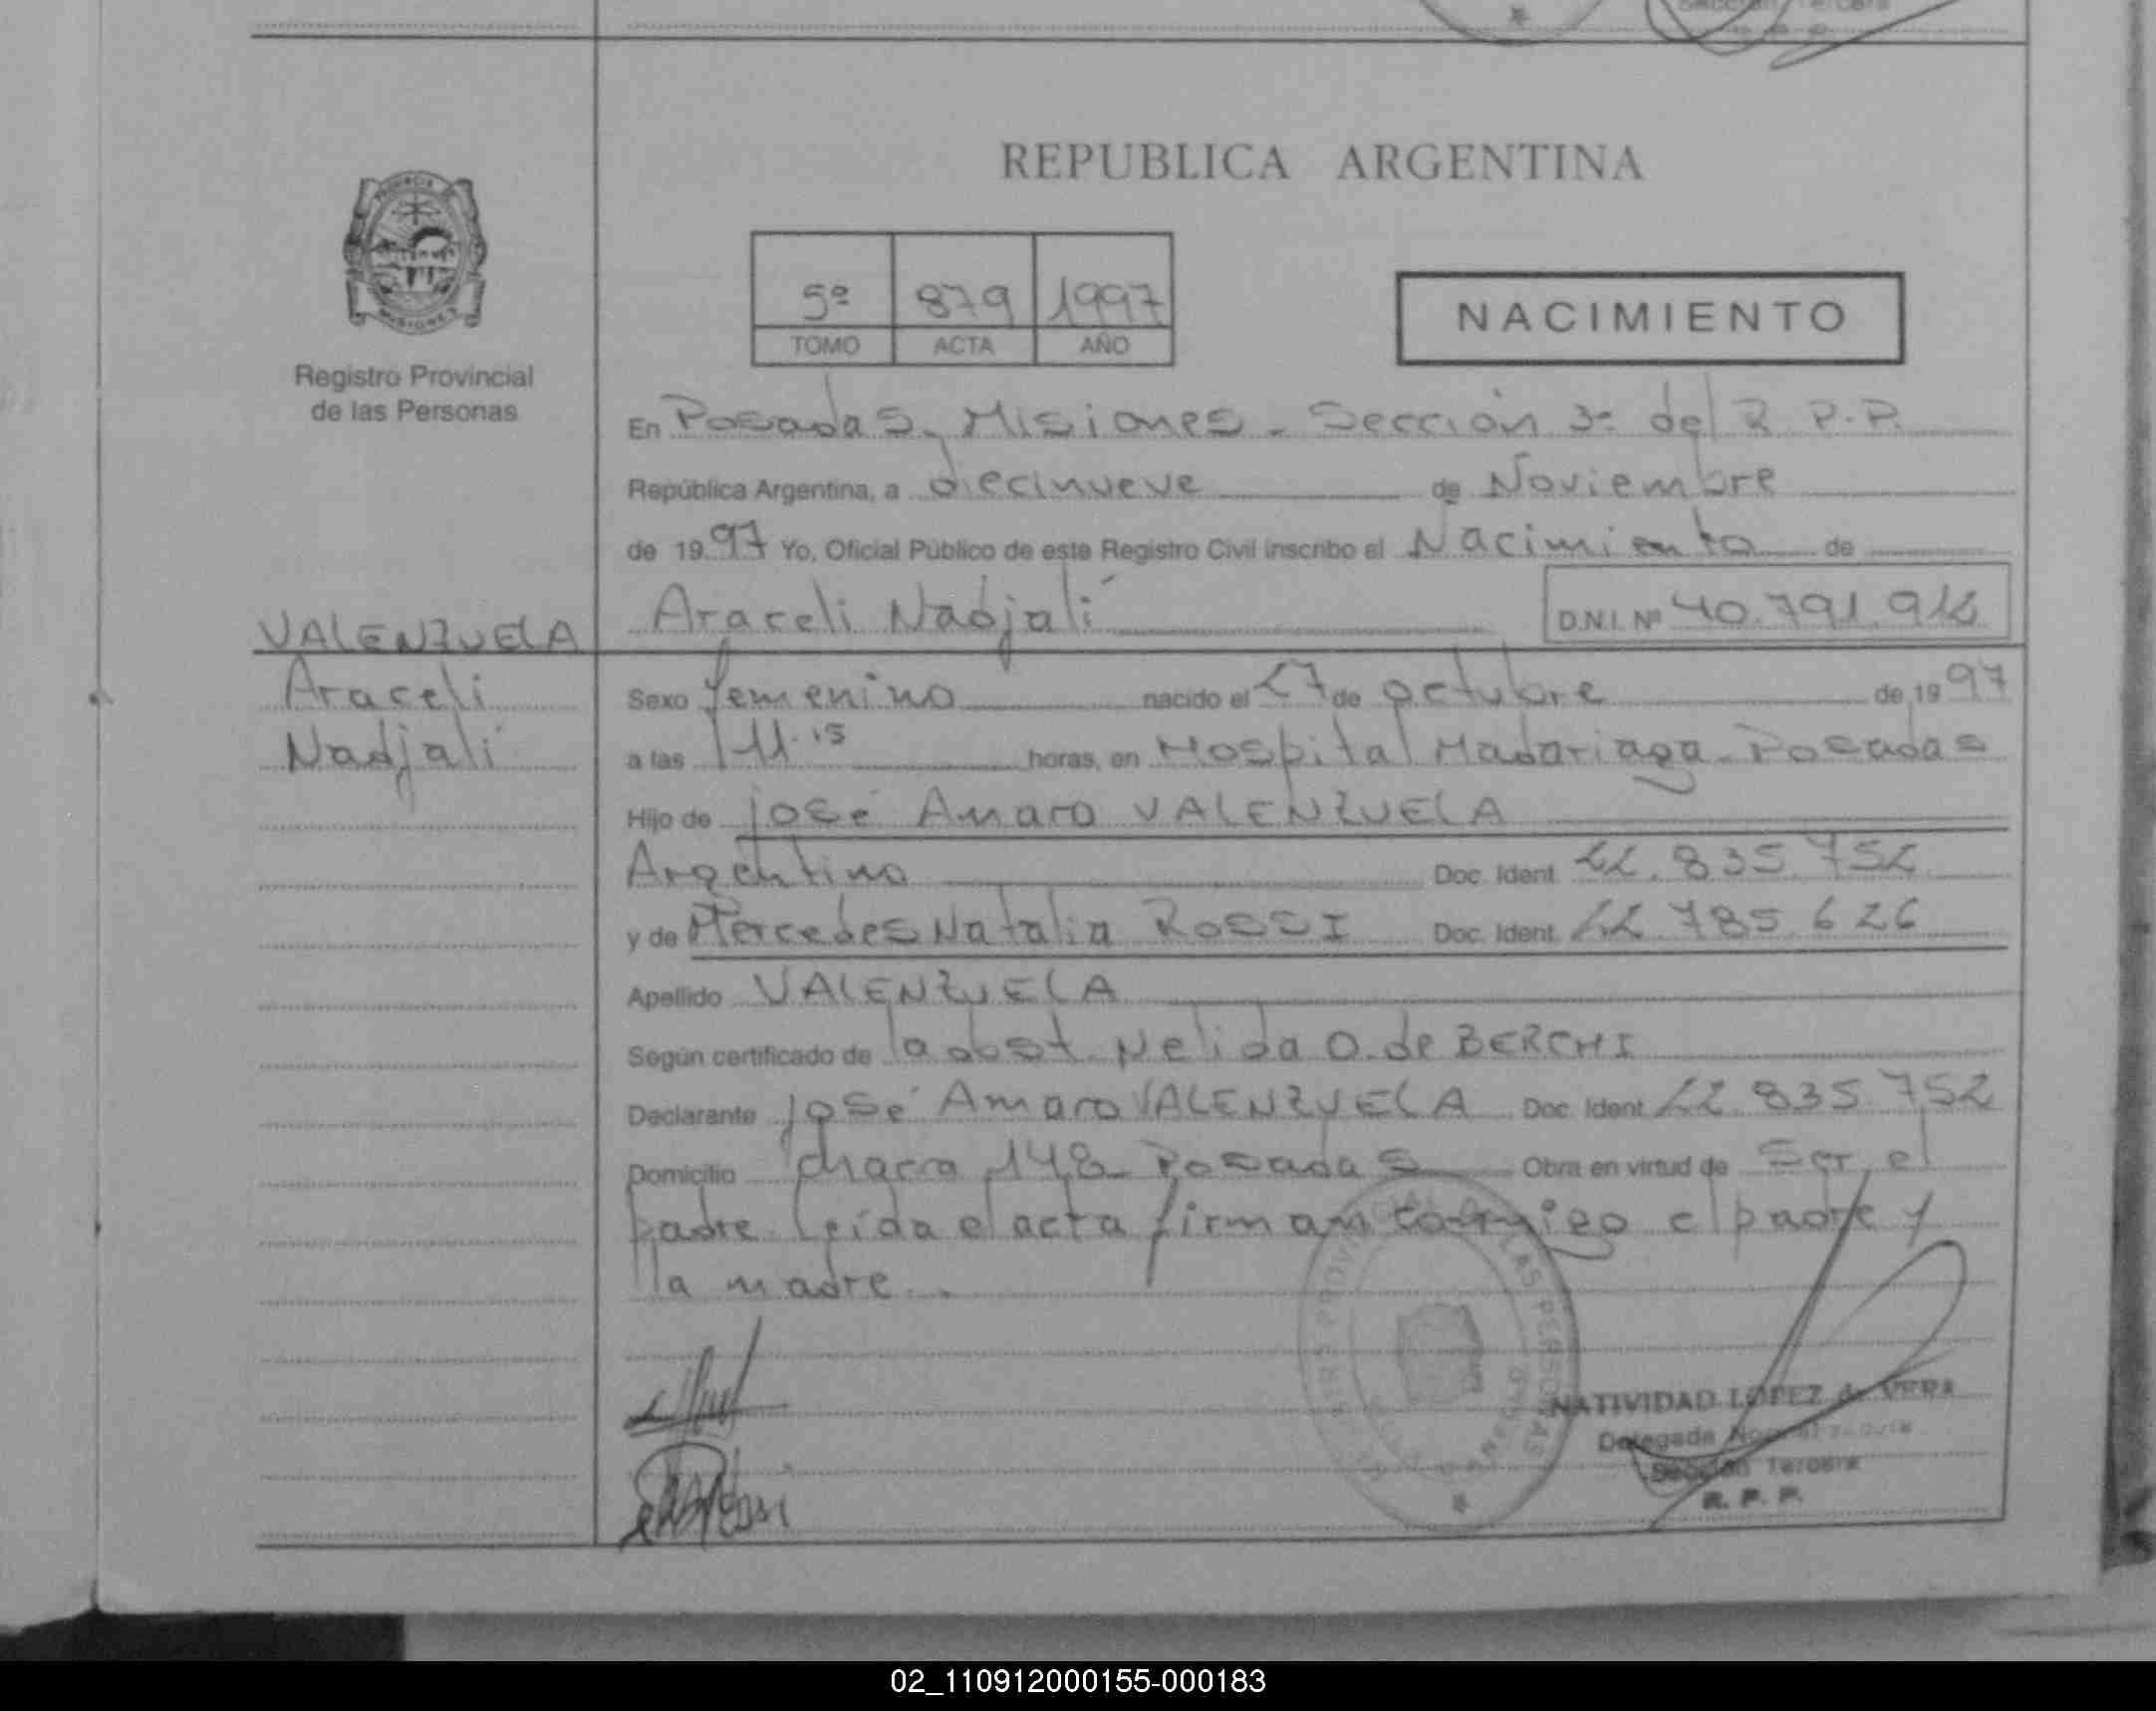 REPUBLICA ARGENTINA
5º 879 1997
TOMO ACTA AÑO
NACIMIENTO
Registro Provincial
de las Personas
En Posadas. Misiones - Sección 3ª del R P.P.
República Argentina, a diecinueve de Noviembre
de 1997 Yo, Oficial Público de este Registro Civil inscribo el Nacimiento de
Araceli Nadjalí D.N.I. Nº 40.791.914
VALENZUELA
Araceli
Nadjalí
Sexo femenino nacido el 27 de octubre de 1997
a las 11.15 horas, en Hospital Madariaga - Posadas
Hijo de José Amaro VALENZUELA
Argentino Doc. Ident. 22.835.752
y de Mercedes Natalia ROSSI Doc. Ident. 22.785.626
Apellido VALENZUELA
Según certificado de la obst. Nelida O. de BERCHI
Declarante José Amaro VALENZUELA Doc. Ident. 22.835.752
Domicilio chacra 148 - Posadas Obra en virtud de Ser el
padre. Leída el acta firman conmigo el padre y
la madre.
NATIVIDAD LOPEZ de VERA
Delegada
Sección Tercera
R. P. P.
02_110912000155-000183